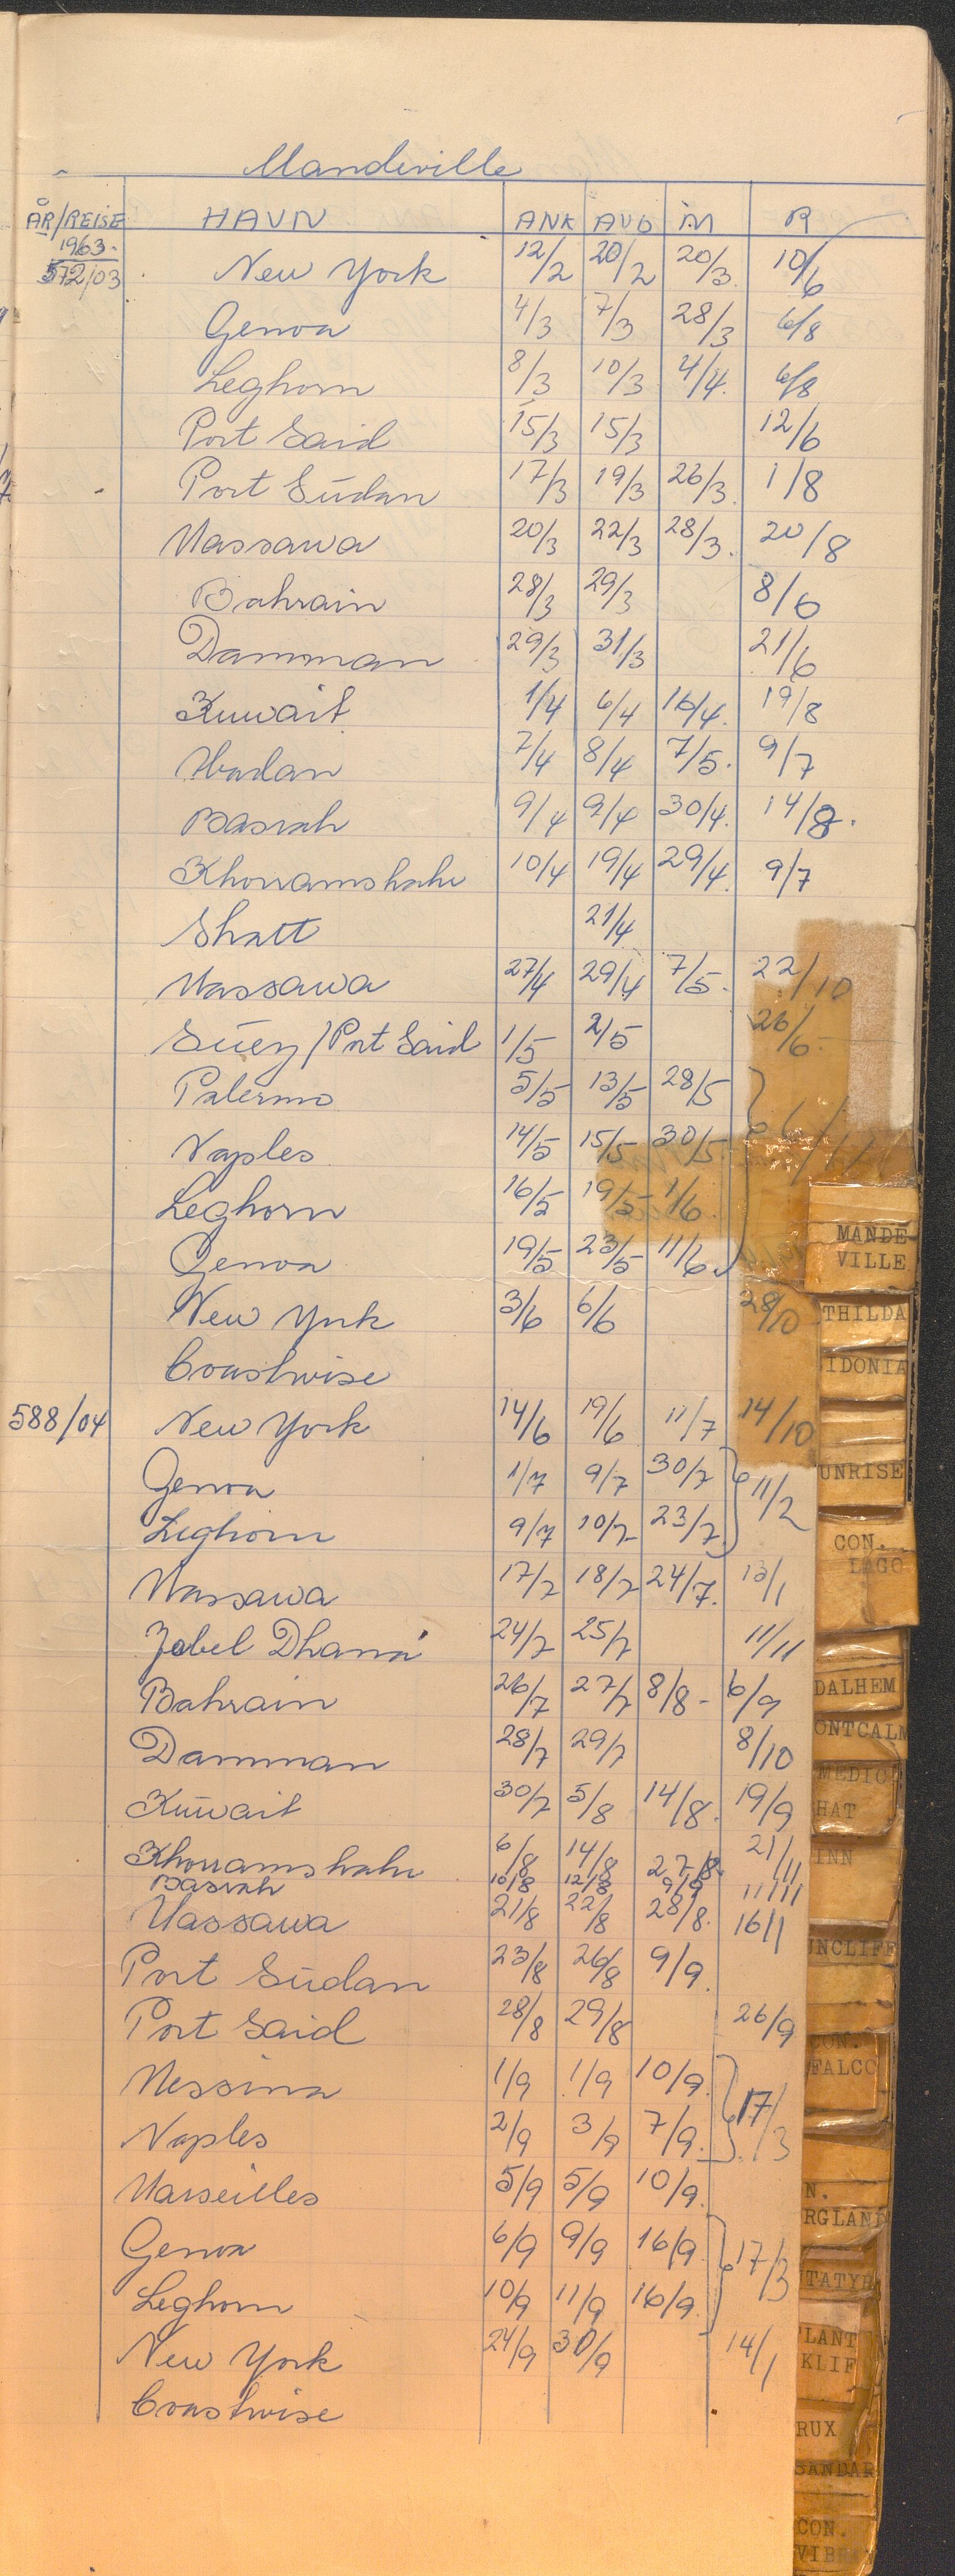 Mandeville
ÅR/REISE HAVN ANK AVG M R
1963.
572/03 New York 12/2 20/2 20/3. 10/6
Genoa 4/3 7/3 28/3 6/8
Leghorn 8/3 10/3 4/4. 6/8
Port Said 15/3 15/3 12/6
Port Sudan 17/3 19/3 26/3. 1/8
Massawa 20/3 22/3 28/3. 20/8
Bahrain 28/3 29/3 8/6
Damman 29/3 31/3 21/6
Kuwait 1/4 6/4 16/4. 19/8
Abadan 7/4 8/4 7/5. 9/7
Basrah 9/4 9/4 30/4. 14/8.
Khorramshahr 10/4 19/4 29/4. 9/7
Shatt 21/4
Massawa 27/4 29/4 7/5. 22/10
Suez/Port Said 1/5 2/5 26/6.
Palermo 5/5 13/5 28/5
Naples 14/5 15/5 30/5.
Leghorn 16/5 19/5 1/6.
Genoa 19/5 23/5 11/6.
New York 3/6 6/6 28/10
Coastwise
588/04 New York 14/6 19/6 11/7 14/10
Genoa 1/7 9/7 30/7 11/2
Leghorn 9/7 10/7 23/7
Massawa 17/7 18/7 24/7. 13/1
Jebel Dhana 24/7 25/7 11/11
Bahrain 26/7 27/7 8/8- 6/9
Damman 28/7 29/7 8/10
Kuwait 30/7 5/8 14/8. 19/9
Khorramshahr 6/8 14/8 27/8. 21/11
Basrah 10/8 12/8 9/9 11/11
Massawa 21/8 22/8 28/8. 16/1
Port Sudan 23/8 26/8 9/9.
Port Said 28/8 29/8 26/9
Messina 1/9 1/9 10/9. 17/3
Naples 2/9 3/9 7/9.
Marseilles 5/9 5/9 10/9.
Genoa 6/9 9/9 16/9. 17/3
Leghorn 10/9 11/9 16/9.
New York 24/9 30/9 14/1
Coastwise
MANDE-
VILLE
THILDA
IDONIA
UNRISE
CON.
LAGO
DALHEM
ONTCALM
MEDIC
HAT
INN
UNCLIFF
CON.
FALCO
N.
RGLAND
TATYB
PLANT
KLIF
RUX
SANDAR
CON.
VIB